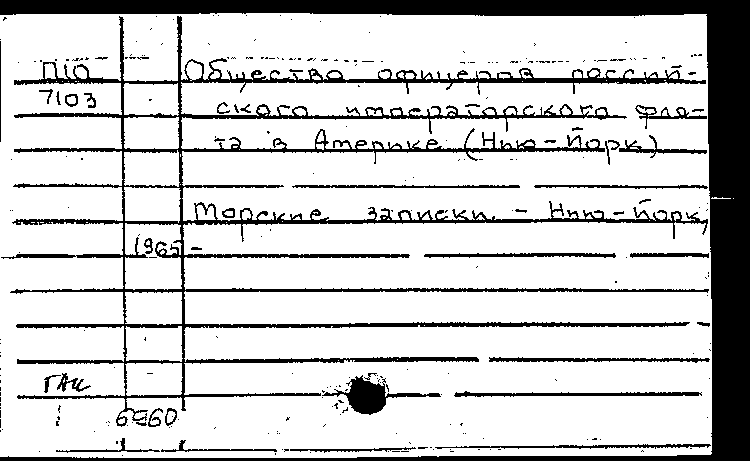 П10 Общество офицеров россий-
7103 ского императорского фло-
та в Америке (Нью-Йорк)
Морские записки. - Нью-Йорк,
1965-
ГАК
1 6960